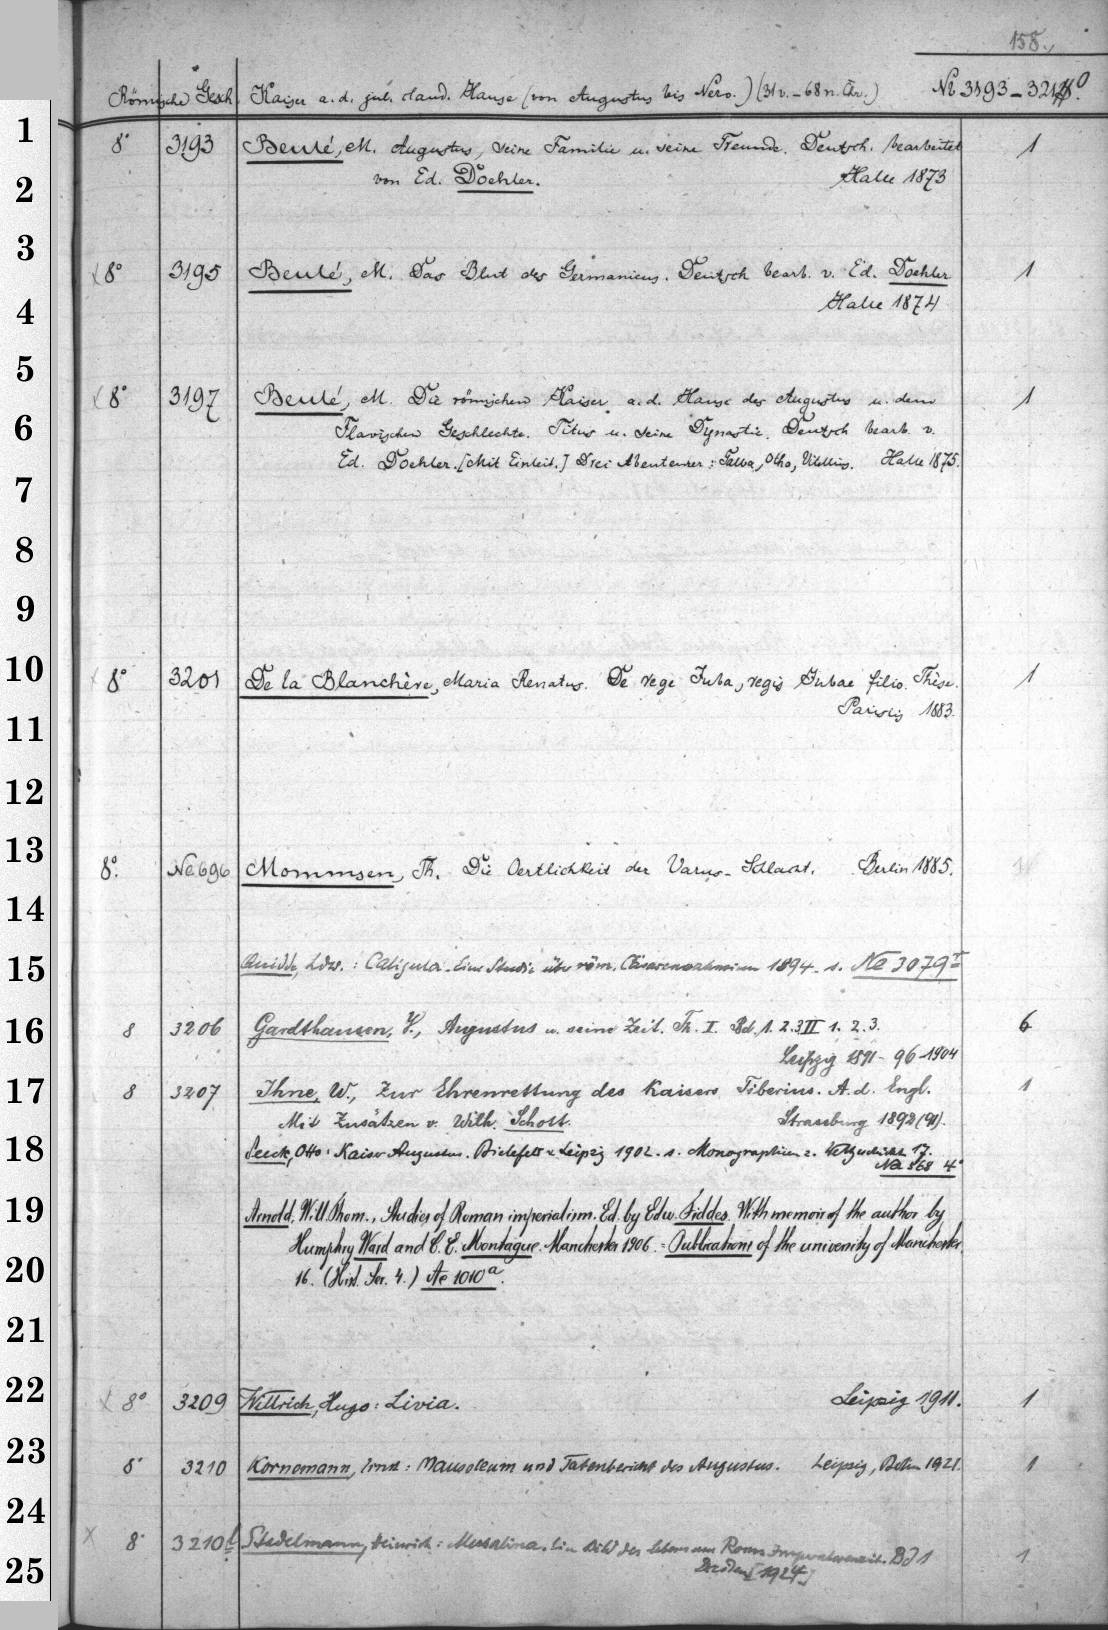 158.
Römische Gesch. Kaiser a. d. jul. claud. Hause (von Augustus bis Nero.) (31 v. - 68 n. Chr.) № 3193 - 3212 8°
1
8° 3193 Beulé, M. Augustus, seine Familie u. seine Freunde. Deutsch. bearbeitet 1
2
von Ed. Doehler. Halle 1873
3
8° 3195 Beulé, M. Das Blut des Germanicus. Deutsch bearb. v. Ed. Doehler 1
4
Halle 1874
5
8° 3197 Beulé, M. Die römischen Kaiser a. d. Hause des Augustus u. dem 1
6
Flavischen Geschlechte. Titus u. seine Dynastie. Deutsch bearb. v.
Ed. Doehler. [Mit Einleit.] Drei Abenteurer: Galba, Otho, Vitellius. Halle 1875.
7
8
9
10
8° 3201 De la Blanchère, Maria Renatus. De rege Juba, regis Jubae filio. Thèse. 1
Parisiis 1883.
11
12
13
8°. Ne 696 Mommsen, Th. Die Oertlichkeit der Varus-Schlacht. Berlin 1885.
14
15
Quidde, Ldw.: Caligula. Eine Studie über röm. Cäsarenwahnsinn 1894. s. Ne 3079
16
8 3206 Gardthausen, V., Augustus u. seine Zeit. Th. I. Bd. 1. 2. 3 II 1. 2. 3. 6
Leipzig 1891 - 96 - 1904
17
8 3207 Ihne, W., Zur Ehrenrettung des Kaisers Tiberius. A. d. Engl. 1
Mit Zusätzen v. Wilh. Schott. Strassburg 1892 (91).
18
Seeck, Otto: Kaiser Augustus. Bielefeld u. Leipzig 1902. s. Monographien z. Weltgeschichte 17.
Na 868 4°
19
Arnold, Will. Thom., Studies of Roman imperialism. Ed. by Edw. Fiddes. With memoir of the author by
Humphry Ward and C. E. Montague. Manchester 1906. = Publications of the university of Manchester.
20
16. (Hist. Ser. 4.) Ae 1010a.
21
22
8° 3209 Willrich, Hugo: Livia. Leipzig 1911. 1
23
8° 3210 Kornemann, Ernst: Mausoleum und Tatenbericht des Augustus. Leipzig, Berlin 1921. 1
24
8° 3210 Stadelmann, Heinrich: Messalina. Ein Bild des Lebens aus Roms Imperatorenzeit. Bd 1 1
25
Dresden [1924]